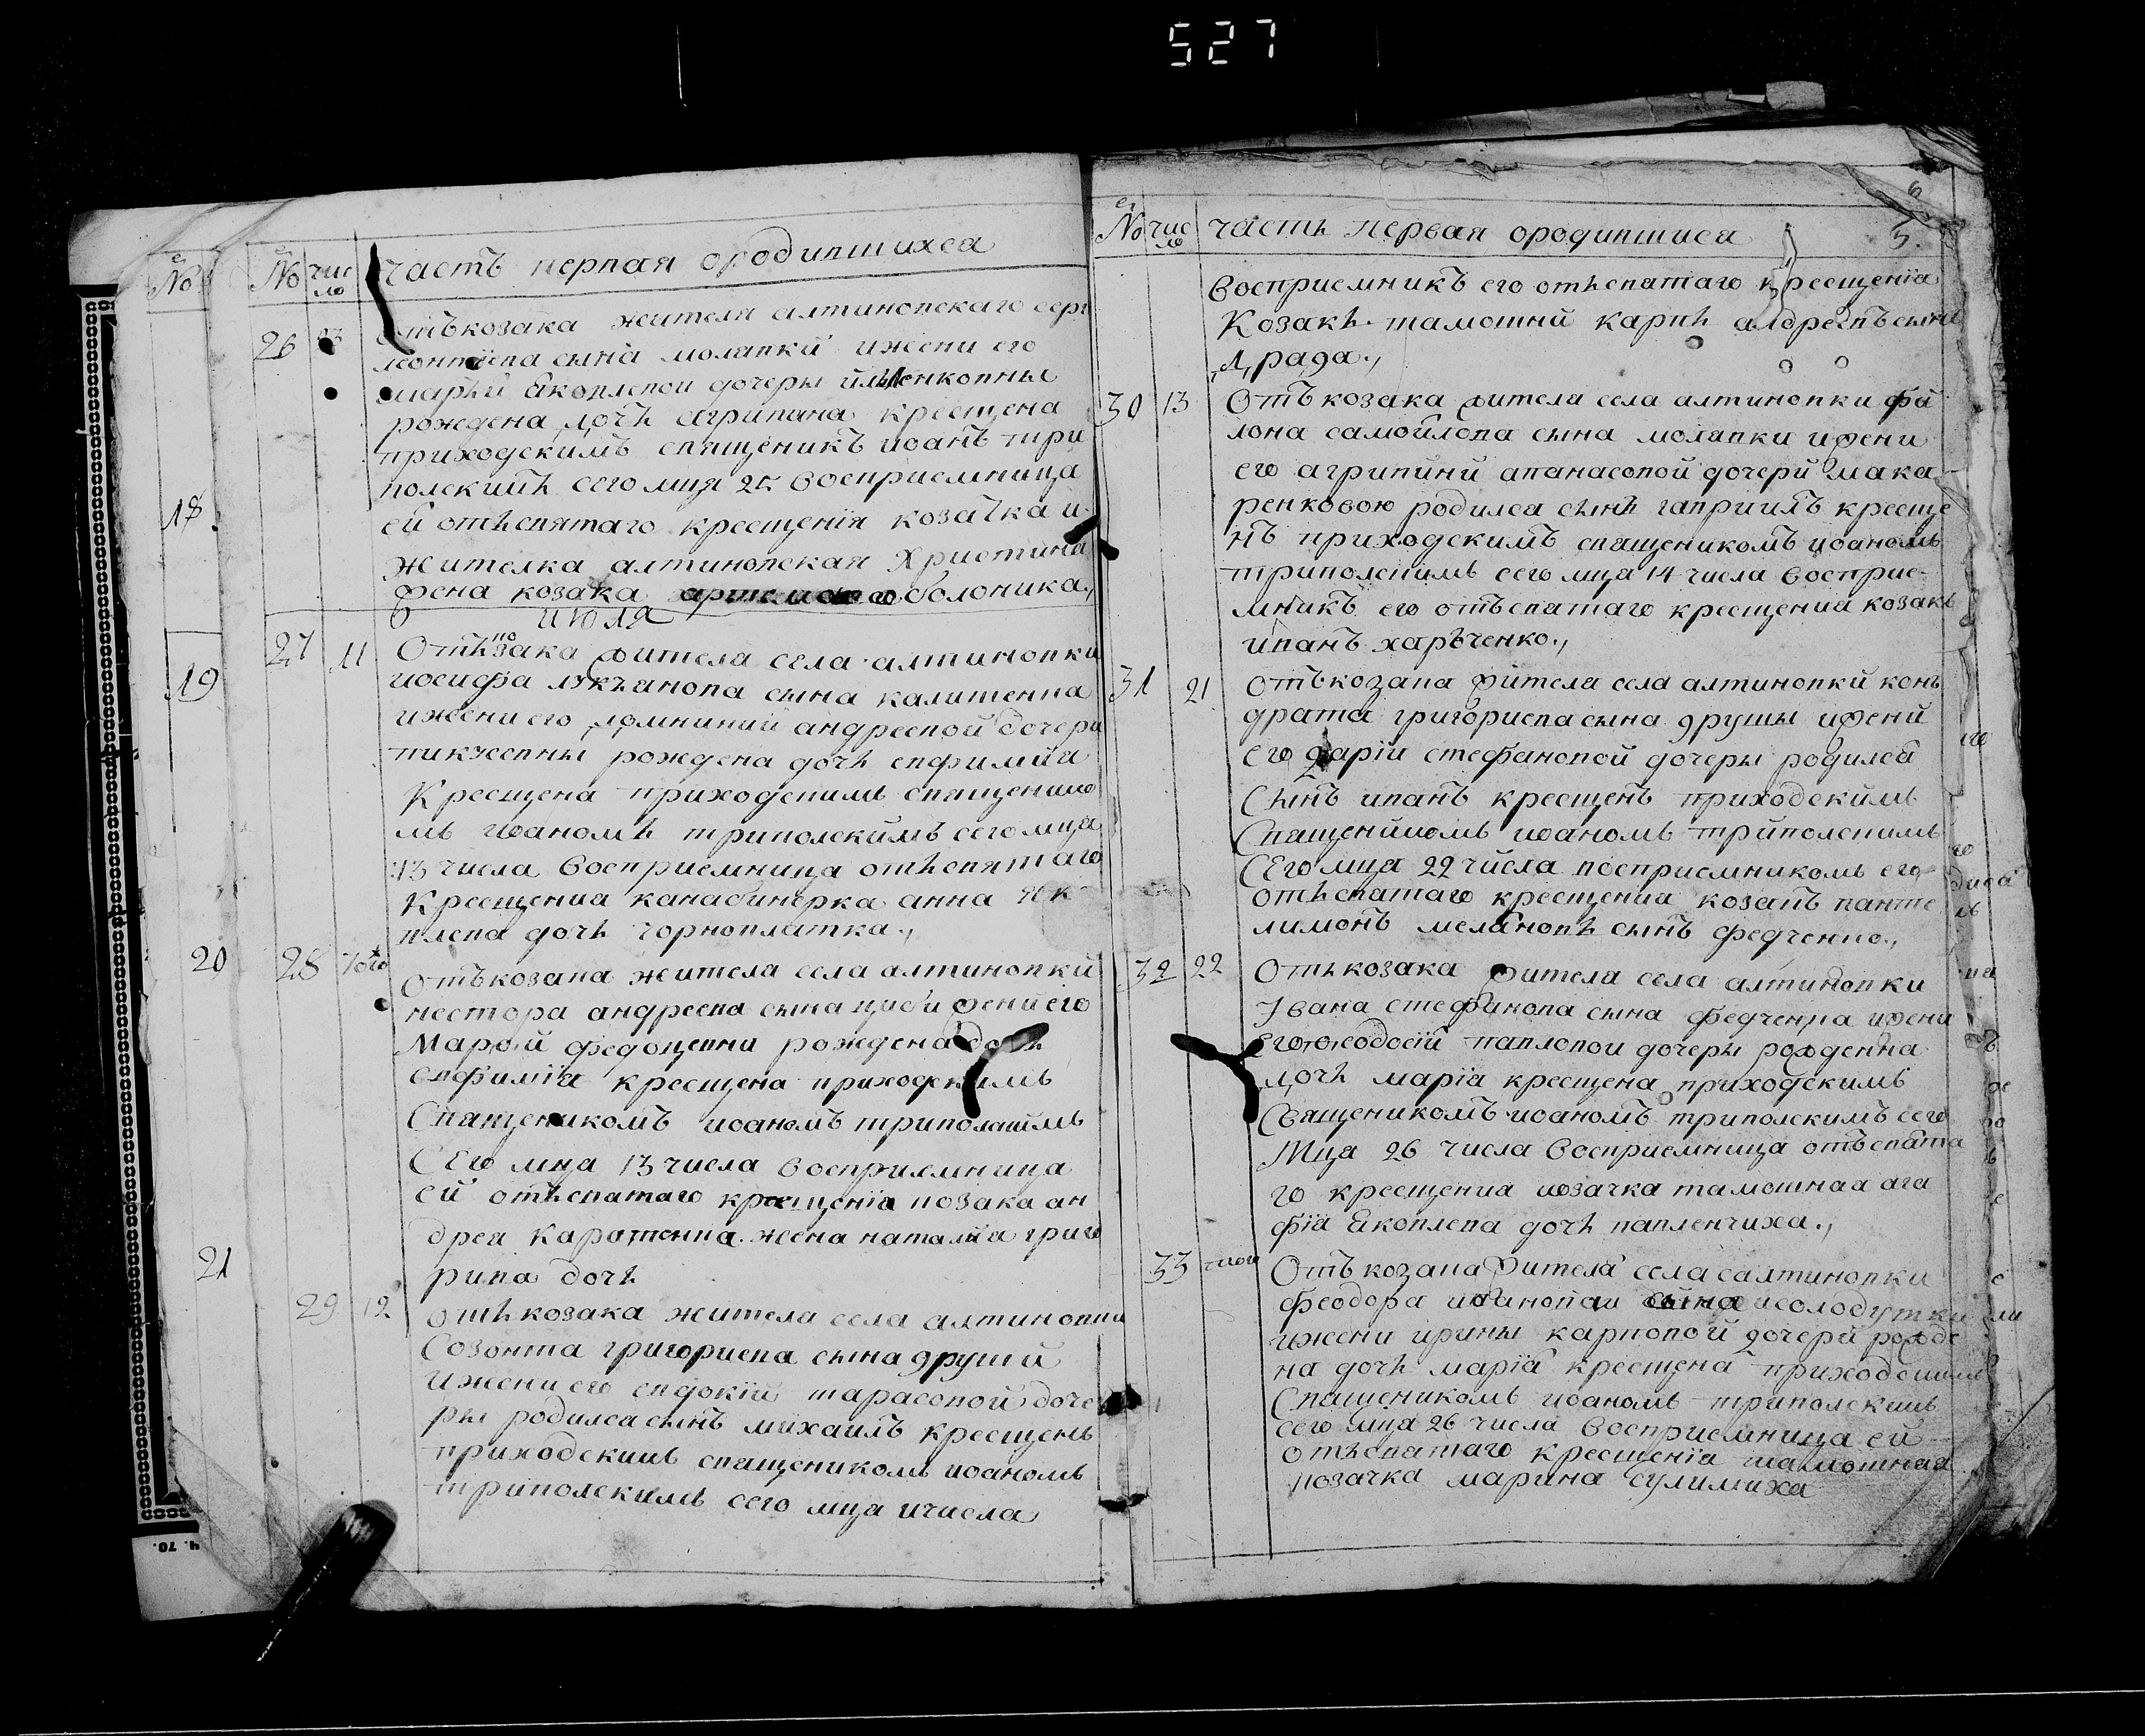 527
№ чис ло Часть первая ородившихса
26 23 отъ козака жителя алтиновскаго
леонтіева сына молявки ижени его
марьи Яковлевой дочеры
рождена дочь Агрипана крещена
приходскимъ священикъ иоанъ три
полскимъ сего мця 25 восприемница
ей отъ святаго крещенія козачка и
жителка алтиновская Христина
жена козака оболоника.,
июля
27 11 Отъ козака жителя села алтиновки
иосифа лукъянова сына калитенка
ижени его домникии андреевой дочери
рождена дочь евфимія
Крещена приходскимъ священико
мъ иоаномъ триполскимъ сего мця
13 числа восприемница отъ святаго
Крещения анна Як
влева дочь чорноплатка.,
28 того отъ козака жителя села алтиновки
нестора андреева сына жени его
Марфи рождена дочь
евфимія крещена приходскимъ
Священикомъ иоаномъ триполскимъ
Сего мця 13 числа восприемница
ей отъ святаго крещенія козака ан
дрея жена наталия григо
рива дочь
29 12 отъ козака жителя села алтиновки
Созонта григориева сына друши
ижени его евдокии тарасовой доче
ры родился сынъ михаилъ крещенъ
приходскимъ священикомъ иоаномъ
триполскимъ сего мця ичисла
18
19
20
21
№ чис ло часть первая ородившися
6
5.
Восприемникъ его отъ святаго крещенія
Козакъ тамошній карпъ андреевъ сынъ
30 13 Отъ козака жителя села алтиновки фи
лона самойлова сына молявки ижени
его агрипини апанасовой дочери мака
ренковою родился сынъ гавриилъ креще
нъ приходскимъ священикомъ иоаномъ
триполскимъ сего мця 14 числа восприе
мникъ его отъ святаго крещения козакъ
иванъ харъченко.,
31 21 отъ козака жителя села алтиновки конъ
драта григориева сына друшы ижени
его дарій стефановой дочеры родился
Сынъ иванъ крещенъ приходскимъ
Священикомъ иоаномъ триполскимъ
Сего мця 22 числа восприемникомъ его
отъ святаго крещения козакъ панте
лимонъ сынъ федченко.,
32 22 Отъ козака жителя села алтиновки
Ивана стефанова сына федченка ижени
его феодосій павловой дочеры рожденна
дочь марія крещена приходскимъ
Священикомъ иоаномъ триполскимъ сего
Мця 26 числа восприемница отъ свята
го крещения козачка тамошная ага
фія Яковлева дочь павленчиха.,
33 Отъ козака жителя села алтиновки
феодора сына
ижени ирины карповой дочери рожде
на дочь марія крещена приходскимъ
Священикомъ иоаномъ триполскимъ
сего мця 26 числа восприемница ей
отъ святаго крещенія тамошная
козачка марина Сулимиха